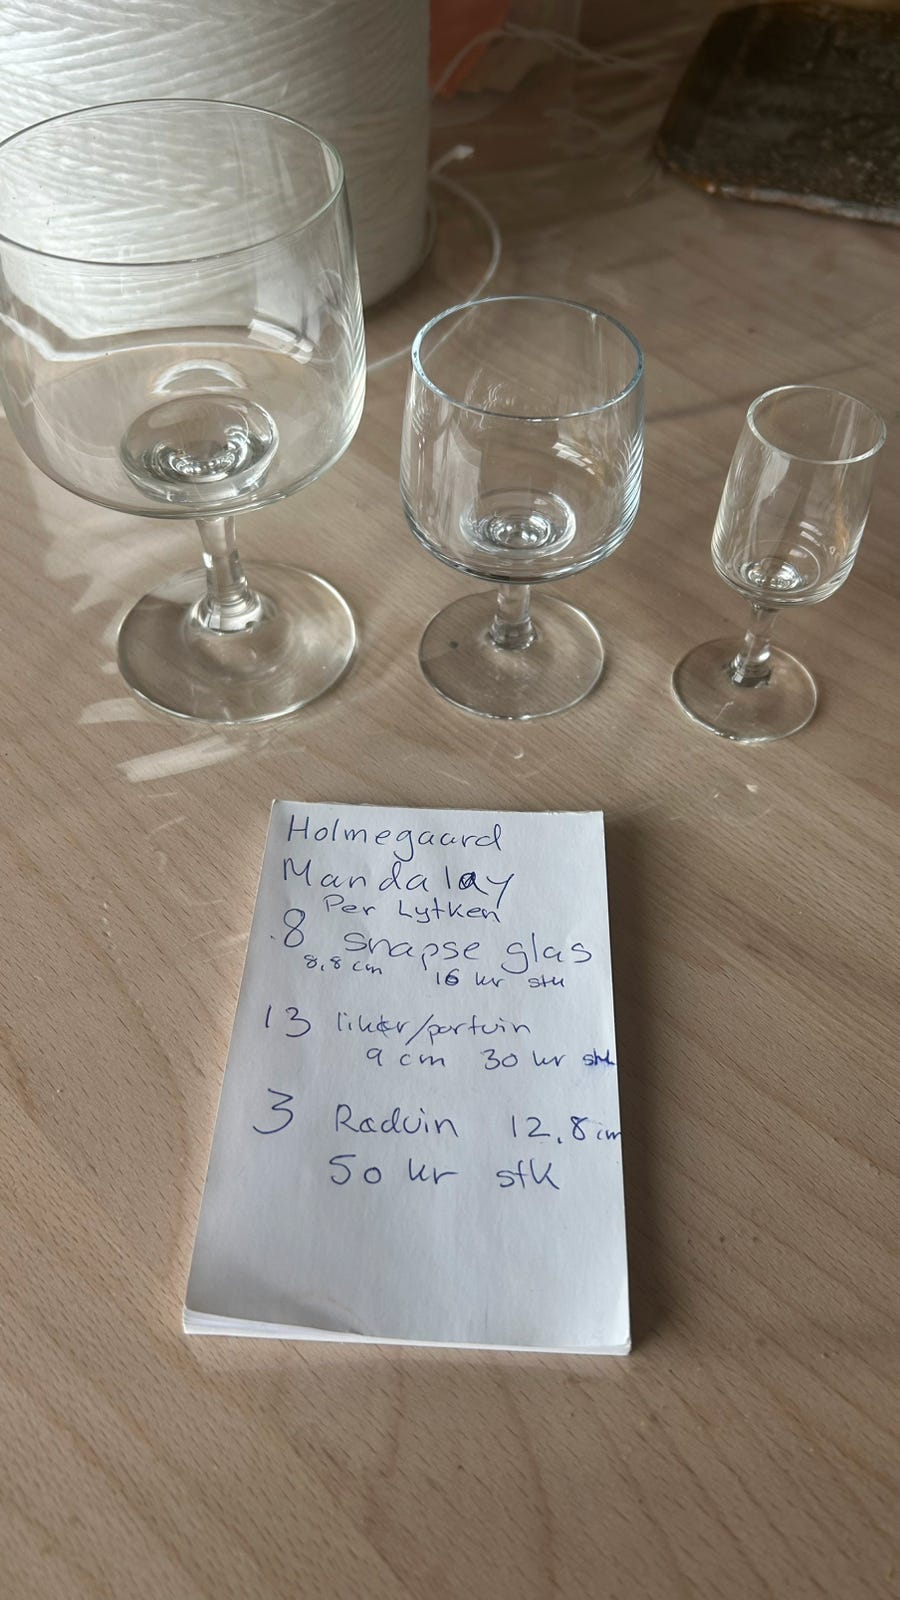 Holmegaard
Mandalay
Per Lytken
8 snapse glas
8,8 cm 16 kr stk
13 likør/portvin
9 cm 30 kr stk
3 Rødvin 12,8 cm
50 kr stk